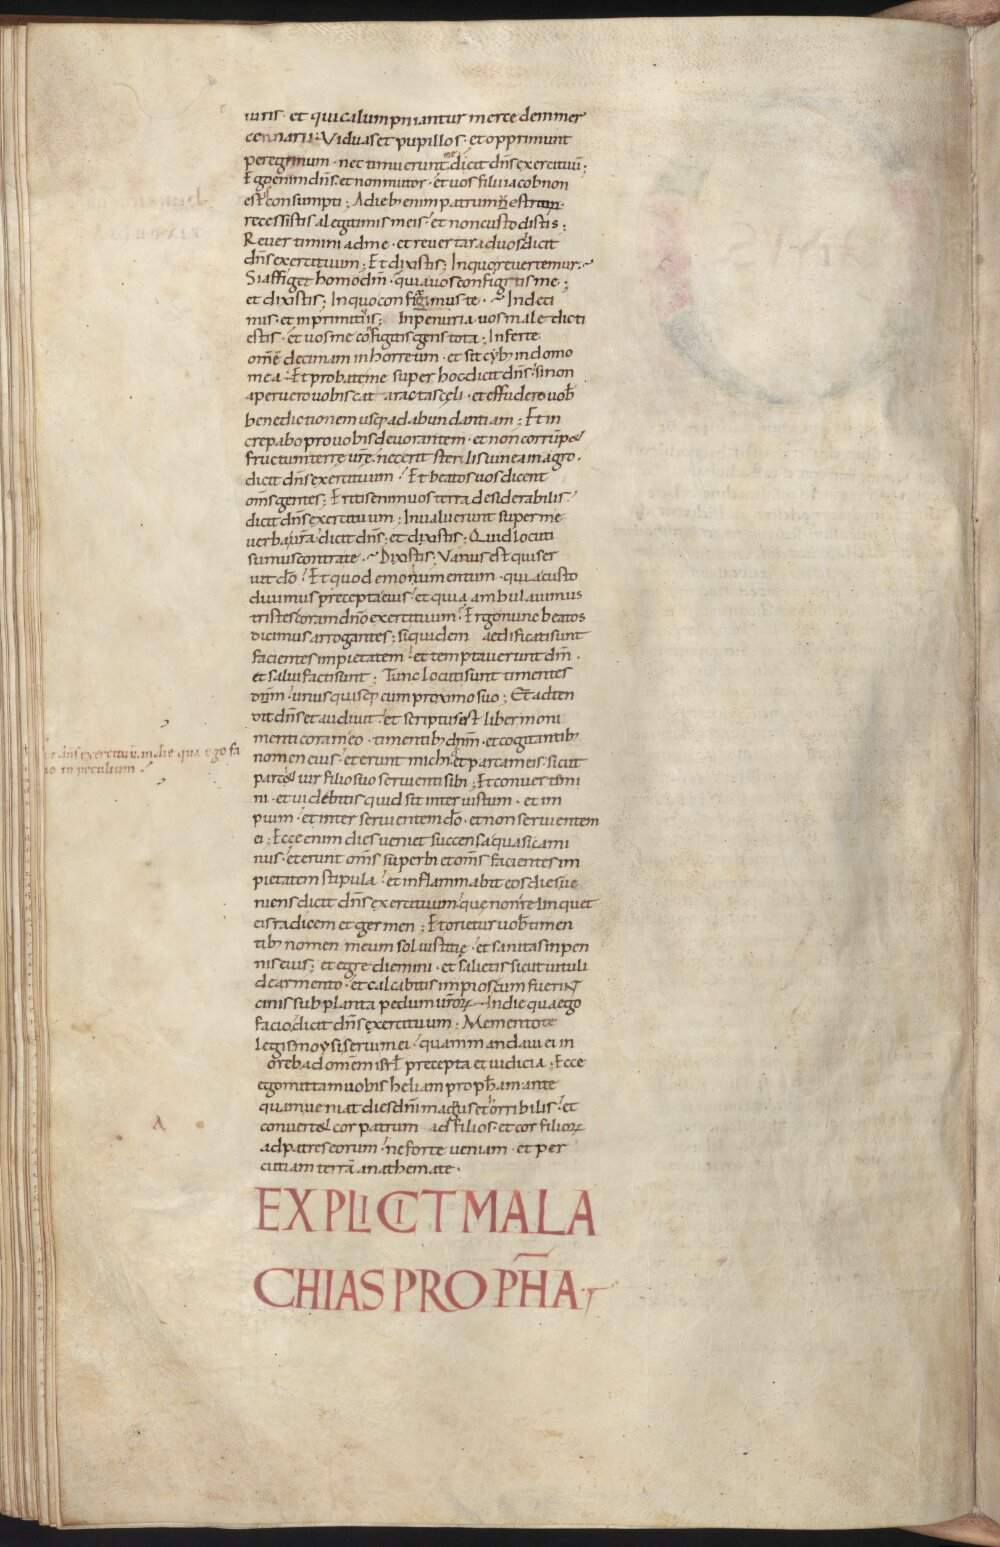 iuris · et qui calumpniantur mercedem mer
cennarii · Viduas et pupillos · et opprimunt
peregrinum · nec timuerunt me dicit dn̄s exercituū ;
Ego enim dn̄s et non mutor · et uos filii iacob non
estis consumpti ; A diebus enim patrum
recessistis a legitimis meis · et non custodistis ;
Reuertimini ad me · et reuertar ad uos dicit
dn̄s exercituum ; Et dixistis ; In quo reuertemur ·
Si affiget homo dm̄ · quia uos configitis me ;
et dixistis ; In quo configimus te · In deci
mis · et in primitiis ; In penuria uos maledicti
estis · et uos me configitis gens tota ; Inferte
omē decimam in horreum · et sit cybꝰ in domo
mea · Et probate me super hoc dicit dn̄s · si non
aperuero uobis cataractas cęli · et effudero uob̄
benedictionem usq; ad abundantiam ; Et in
crepabo pro uobis deuorantem · et non corrūpet
fructum terrę urē · nec erit sterilis uinea in agro ·
dicit dn̄s exercituum · Et beatos uos dicent
om̄s gentes ; Eritis enim uos terra desiderabilis
dicit dn̄s exercituum ; Inualuerunt super me
uerba ura dicit dn̄s ; et dixistis ; Quid locuti
sumus contra te · Dixistis ; Vanus est qui ser
uit do̅ · Et quod emonumentum · quia custo
diuimus precepta eius · et quia ambulauimus
tristes coram dn̄o exercituum · Ergo nunc beatos
dicimus arrogantes ; siquidem aedificati sunt
facientes impietatem · et temptauerunt dm̄ ·
et salui facti sunt ; Tunc locuti sunt timentes
dn̄m · unusquisq; cum proximo suo ; Et adten
dit dn̄s et audiuit · et scriptus est liber moni
menti coram eo · timentibꝰ dn̄m · et cogitantibꝰ
nomen eius · et erunt michi
et parcam eis · sicut
parcet uir filio suo seruienti sibi ; Et conuertemi
ni · et uidebitis quid sit inter iustum · et im
pium · et inter seruientem do̅ · et non seruientem
ei ; Ecce enim dies ueniet succensa quasi cami
nus · et erunt om̄s superbi et om̄s facientes im
pietatem stipula · et inflammabit eos dies ue
niens dicit dn̄s exercituum · quę non relinquet
eis radicem et germen ; Et orietur uob̄ timen
tibꝰ nomen meum sol iustitię · et sanitas in pen
nis eius ; et egrediemini · et salietis sicut uituli
de armento · et calcabitis impios cum fuerint
cinis sub planta pedum urorꝝ · In die qua ego
facio dicit dn̄s exercituum ; Mementote
legis moysi serui mei · quam mandaui ei in
oreb ad omem isrl̄ precepta et iudicia ; Ecce
ego mittam uobis heliam proph̄am ante
quam ueniat dies dn̄i magnus et orribilis · et
conuertet cor patrum ad filios · et cor filiorꝝ
ad patres eorum · ne forte ueniam · et per
cutiam terrā anathemate ·
EXPLICIT MALA
CHIAS PROPH̄A
dn̄s exercituū in die qua ego fa
in peculium